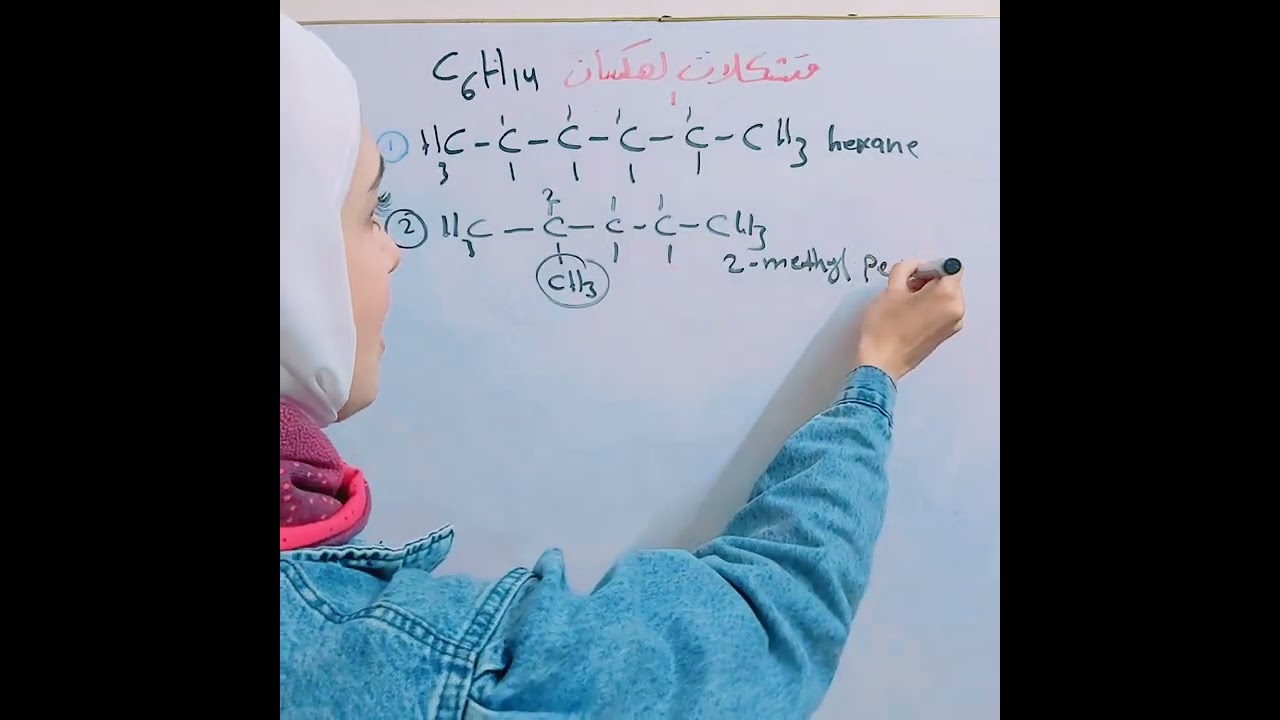 C6H14 متشكلات لهكسان
1 H3C - C - C - C - C - CH3 hexane
2 H3C - C - C - C - CH3
2
CH3
2-methyl pe